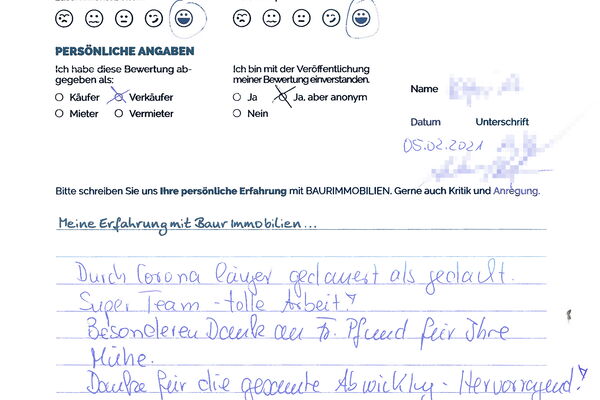 PERSÖNLICHE ANGABEN
Ich habe diese Bewertung ab-
gegeben als:
Käufer Verkäufer
Mieter Vermieter
Ich bin mit der Veröffentlichung
meiner Bewertung einverstanden.
Ja Ja, aber anonym
Nein
Name
Datum Unterschrift
05.02.2021
Bitte schreiben Sie uns Ihre persönliche Erfahrung mit BAURIMMOBILIEN. Gerne auch Kritik und Anregung.
Meine Erfahrung mit Baur Immobilien...
Durch Corona länger gedauert als gedacht.
Super Team - tolle Arbeit!
Besonderen Danke an Fr. Pfund für Ihre
Mühe.
Danke für die gesamte Abwicklung - Hervorragend!